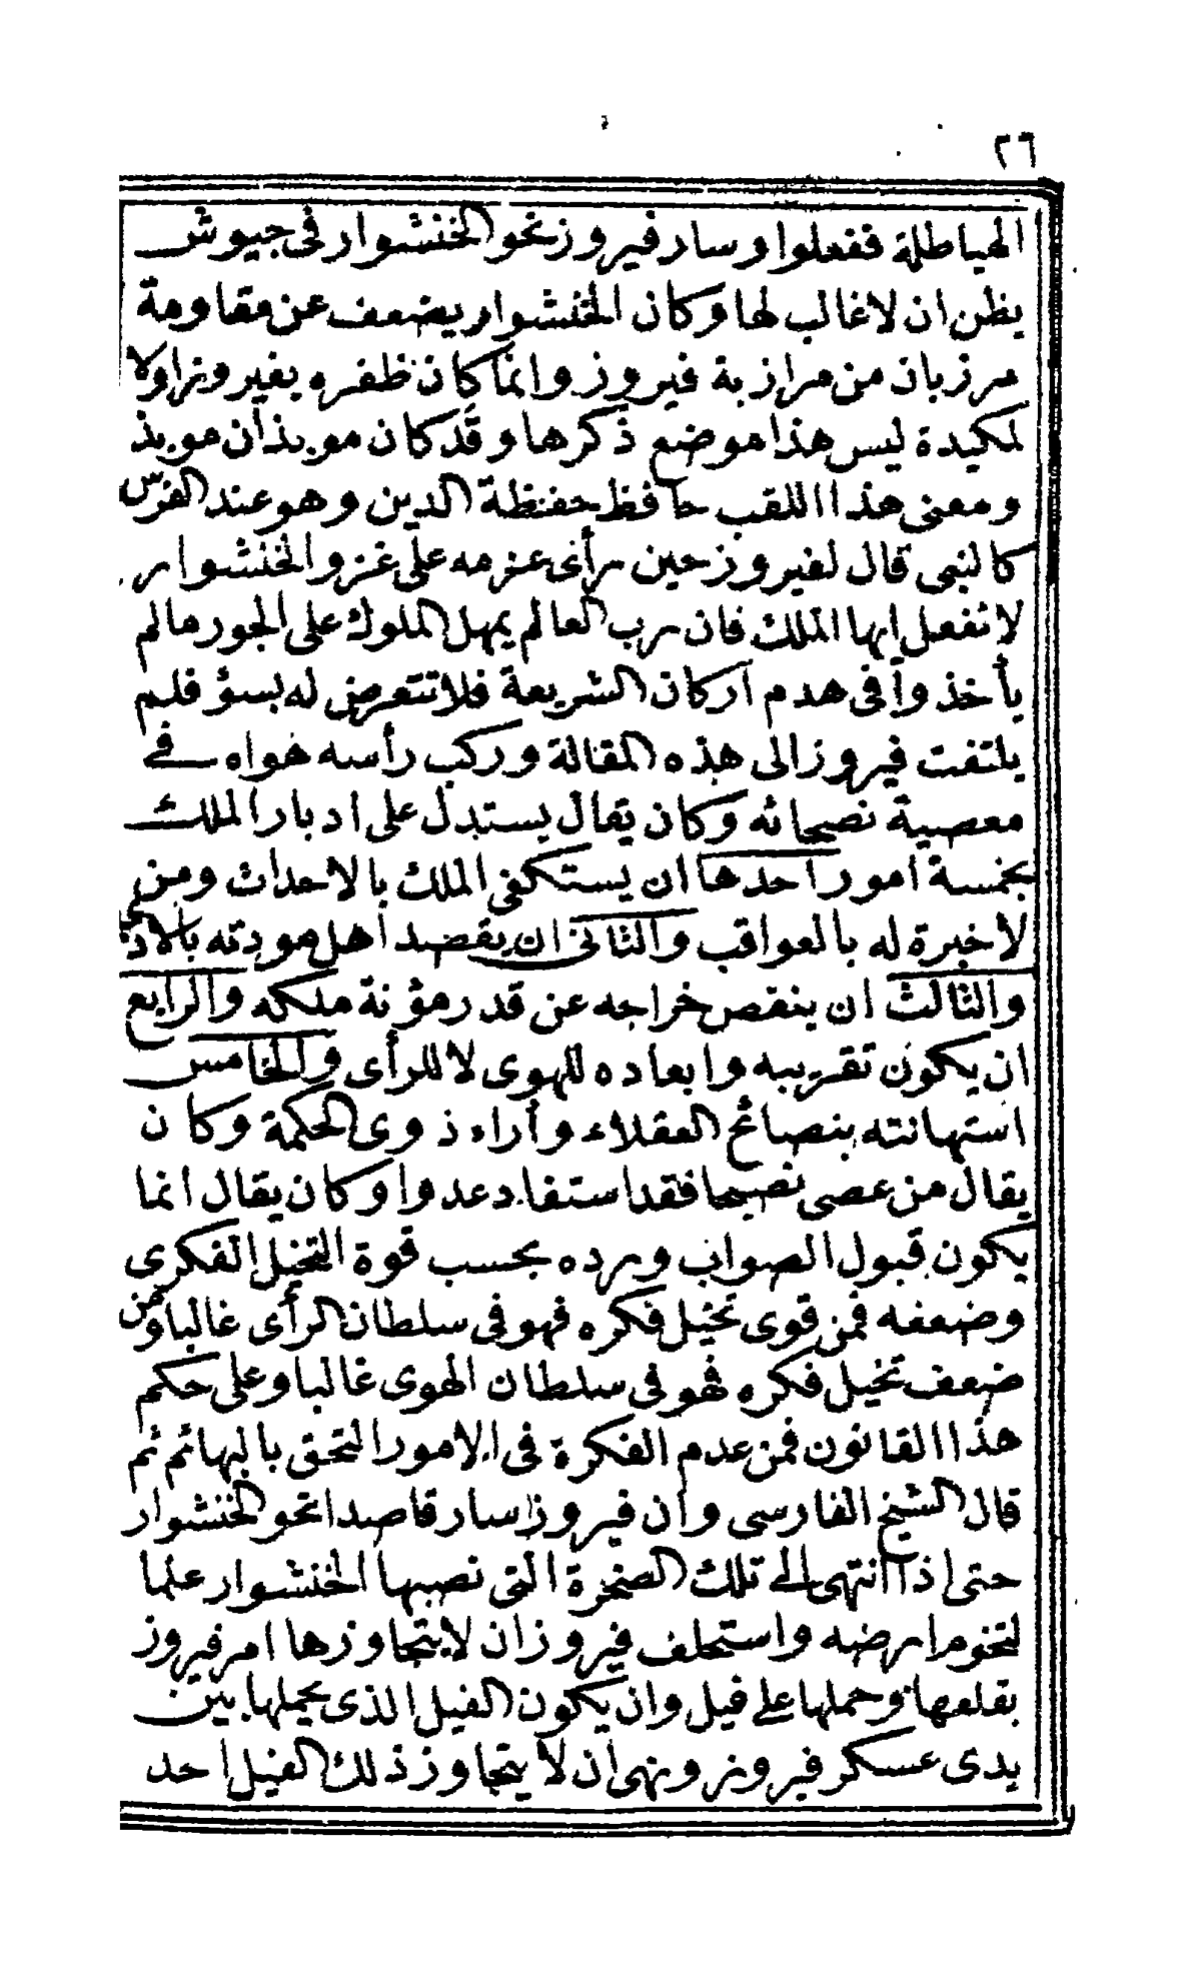 ٢٦
الهياطلة ففعلوا وسار فيروز نحو الخنشوار فى جيوش
يظن ان لا غالب لها وكان الخنشوار يضعف عن مقاومة
مرزبان من مرازبة فيروز وانما كان ظفره بفيروز اولا
لمكيدة ليس هذا موضع ذكرها وقد كان موبذان موبذ
ومعنى هذا اللقب حافظ حفظة الدين وهو عند الفرس
كالنبى قال لفيروز حين رأى عزمه على غزو الخنشوار
لا تفعل ايها الملك فان رب العالم يمهل الملوك على الجور مالم
يأخذوا فى هدم اركان الشريعة فلا تتعرض له بسؤ فلم
يلتفت فيروز الى هذه المقالة وركب رأسه هواه فى
معصية نصحائه وكان يقال يستدل على ادبار الملك
بخمسة امور احدها ان يستكفى الملك بالاحداث ومن
لا خبرة له بالعواقب والثانى ان يقصد اهل مودته بالاذى
والثالث ان ينقص خراجه عن قدر مؤنة ملكه والرابع
ان يكون تقريبه وابعاده للهوى لا للرأى والخامس
استهانته بنصائح العقلاء وأراء ذوى الحكمة وكان
يقال من عصى نصيحا فقد استفاد عدوا وكان يقال انما
يكون قبول الصواب ورده بحسب قوة التخيل الفكرى
وضعفه فمن قوى تخيل فكره فهو فى سلطان الرأى غالبا ومن
ضعف تخيل فكره فهو فى سلطان الهوى غالبا وعلى حكم
هذا القانون فمن عدم الفكرة فى الامور التحق بالبهائم ثم
قال الشيخ الفارسى وان فيروز سار قاصدا نحو الخنشوار
حتى اذا انتهى الى تلك الصخرة التى نصبها الخنشوار علما
لتخوم ارضه واستحلف فيروز ان لا يتجاوزها امر فيروز
بقلعها وحملها على فيل وان يكون الفيل الذى يحملها بين
يدى عسكر فيروز ونهى ان لا يتجاوز ذلك الفيل احد